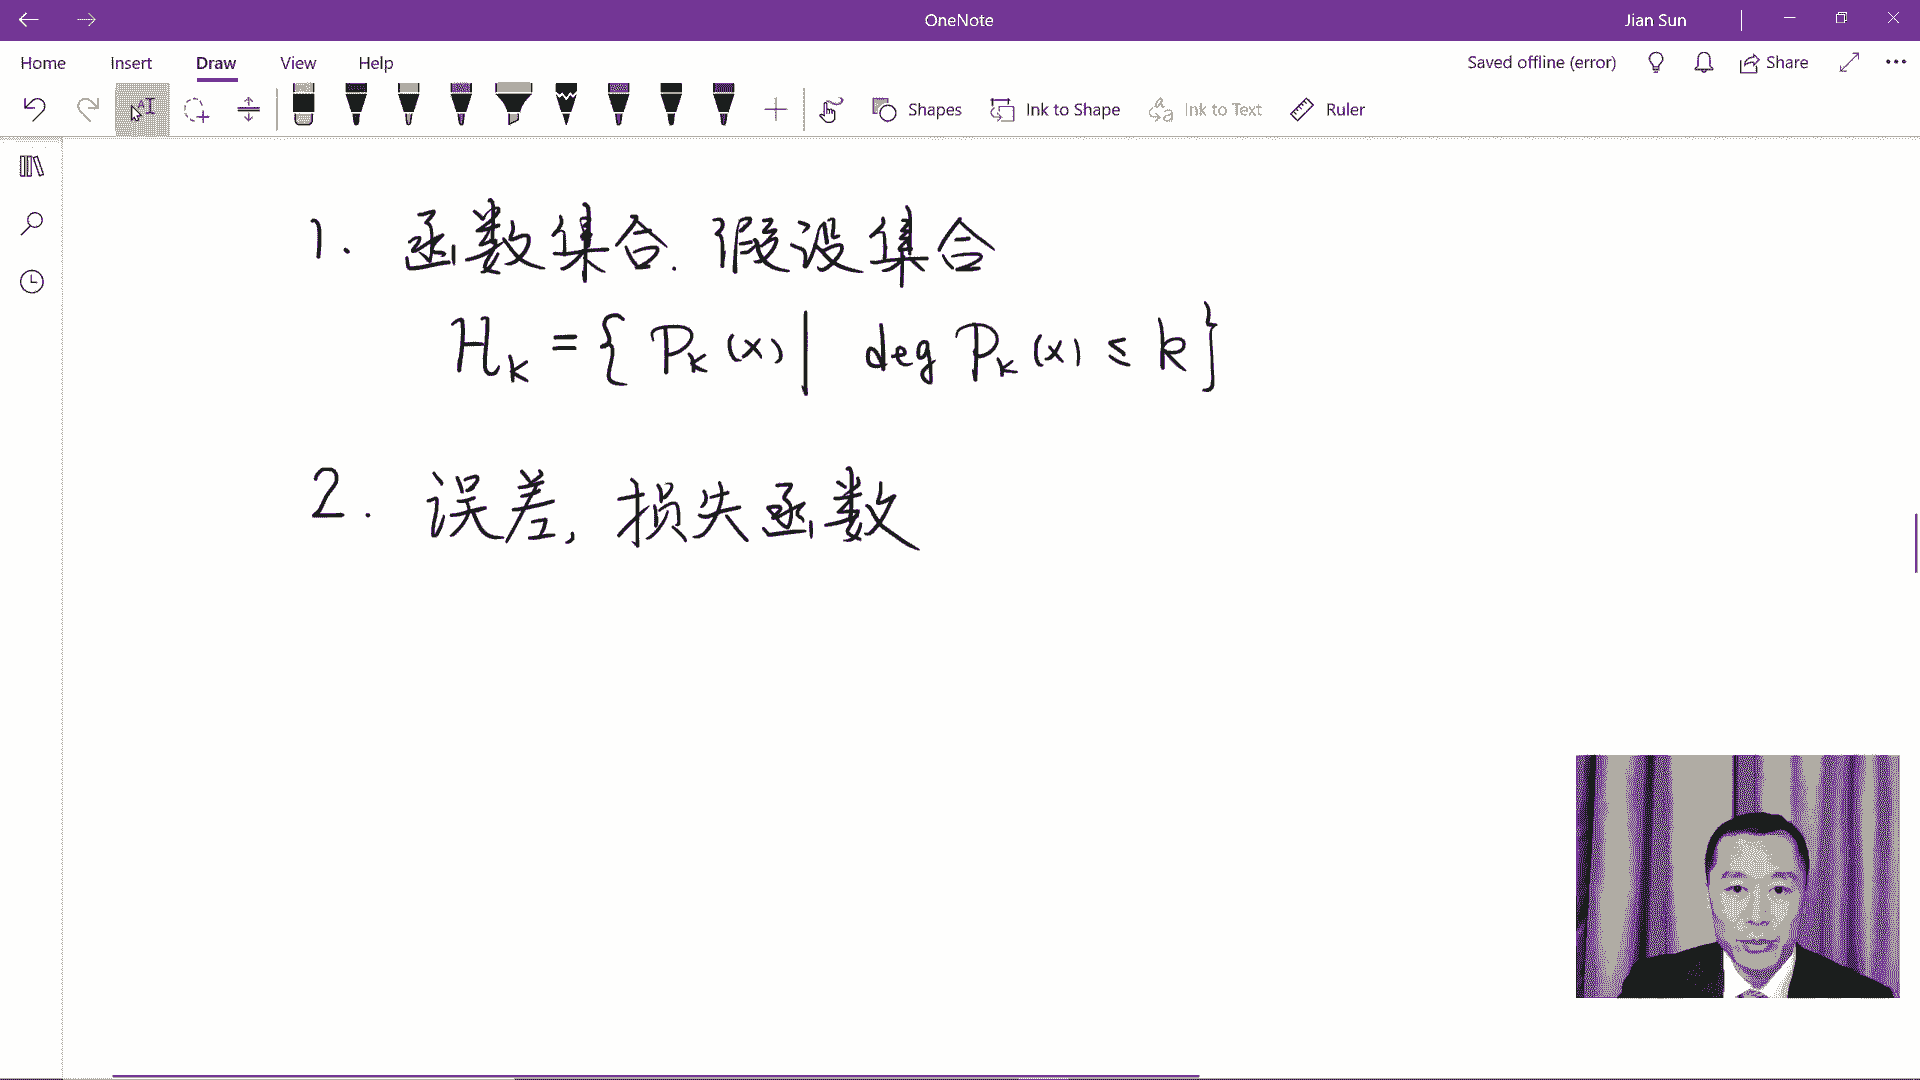 OneNote
Jian Sun
Home Insert Draw View Help
Saved offline (error) Share
Shapes Ink to Shape Ink to Text Ruler
1. 函数集合. 假设集合
H_k = { P_k (x) | deg P_k (x) ≤ k }
2. 误差, 损失函数